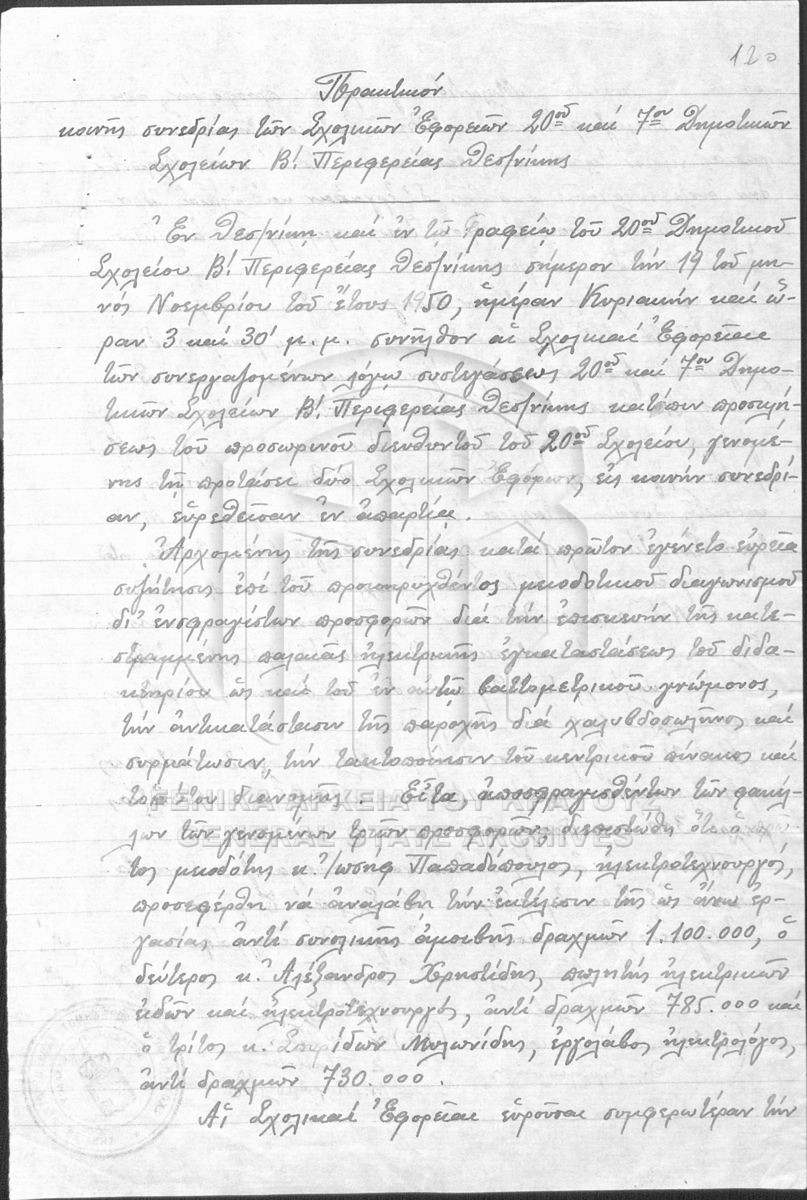 120
Πρακτικόν
κοινῆς συνεδρίας τῶν Σχολικῶν Ἐφορειῶν 20οῦ καί 7ου Δημοτικῶν
Σχολείων Β! Περιφερείας Θεσ/νίκης
Ἐν Θεσ/νίκῃ καί ἐν τῷ Γραφείῳ τοῦ 20οῦ Δημοτικοῦ
Σχολείου Β! Περιφερείας Θεσ/νίκης σήμερον τήν 19 τοῦ μη-
νός Νοεμβρίου τοῦ ἔτους 1950, ἡμέραν Κυριακήν καί ὥ-
ραν 3 καί 30' μ.μ. συνῆλθον αἱ Σχολικαί Ἐφορεῖαι
τῶν συνεργαζομένων λόγω συστεγάσεως 20οῦ καί 7ου Δημο-
τικῶν Σχολείων Β! Περιφερείας Θεσ/νίκης κατόπιν προσκλή-
σεως τοῦ προσωρινοῦ διευθυντοῦ τοῦ 20οῦ Σχολείου, γενομέ-
νης τῇ προτάσει δύο Σχολικῶν Ἐφόρων, εἰς κοινήν συνεδρί-
αν, εὑρεθεῖσαι ἐν ἀπαρτίᾳ.
Ἀρχομένης τῆς συνεδρίας κατά πρῶτον ἐγένετο εὐρεῖα
συζήτησις ἐπί τοῦ προκηρυχθέντος μειοδοτικοῦ διαγωνισμοῦ
δι' ἐνσφραγίστων προσφορῶν διά τήν ἐπισκευήν τῆς κατε-
στραμμένης παλαιᾶς ἠλεκτρικῆς ἐγκαταστάσεως τοῦ διδα-
κτηρίου ὡς καί τοῦ ἐν αὐτῷ βαττομετρικοῦ γνώμονος,
τήν ἀντικατάστασιν τῆς παροχῆς διά χαλυβδοσωλῆνος καί
συρμάτωσιν, τήν τακτοποίησιν τοῦ κεντρικοῦ πίνακος καί
διανομῆς. Εἶτα ἀποσφραγισθέντων τῶν φακέλ-
λων τῶν γενομένων τριῶν προσφορῶν, διεπιστώθη ὅτι ὁ
τος μειοδότης κ. Ἰωσήφ Παπαδόπουλος, ἠλεκτροτεχνουργός,
προσεφέρθη νά ἀναλάβῃ τήν ἐκτέλεσιν τῆς ὡς ἄνω ἐρ-
γασίας ἀντί συνολικῆς ἀμοιβῆς δραχμῶν 1.100.000, ὁ
δεύτερος κ. Ἀλέξανδρος Χρηστίδης, πωλητής ἠλεκτρικῶν
εἰδῶν καί ἠλεκτροτεχνουργός, ἀντί δραχμῶν 785.000 καί
ὁ τρίτος κ. Σπυρίδων Μυλωνίδης, ἐργολάβος ἠλεκτρολόγος,
ἀντί δραχμῶν 730.000.
Αἱ Σχολικαί Ἐφορεῖαι εὑροῦσαι συμφερωτέραν τήν
ΓΕΝΙΚΑ ΑΡΧΕΙΑ ΤΟΥ ΚΡΑΤΟΥΣ
GENERAL STATE ARCHIVES